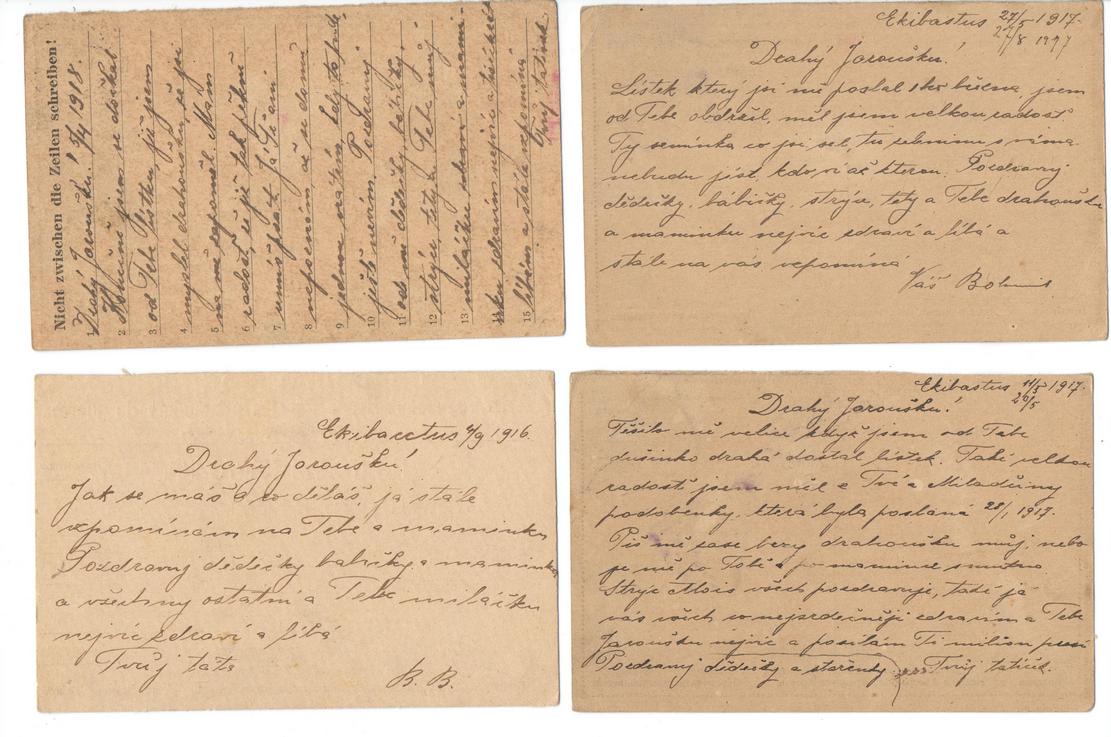 Nicht zwischen die Zeilen schreiben!
1 Drahý Jaroušku! 5/4 1918.
2 jsem se dočkal
3 od Tebe lístku, již jsem
4 myslel drahoušku, že jsi
5 na mě zapoměl. Mám
6 radost, že již tak pěkně
7 umíš psát. Já Ti ani
8 nepoznám, až se domů
9 jednou vrátím, kdy to bude
10 ještě nevím. Pozdravuj
11 ode mě dědečky, babičky,
12 strýce, tety a Tebe můj
13 miláčku zdraví a mami-
14 nku zdravím nejvíce a
15 líbám a stále vzpomíná
Tvůj tatínek
Ekibastus 27/5 1917.
27/8 1917
Drahý Jaroušku!
Lístek který jsi mě poslal 1ho března, jsem
od Tebe obdržel, měl jsem velkou radost
Ty semínka co jsi sel, tu zeleninu s váma
nebudu jíst, kdo ví až kterou. Pozdravuj
dědečky, bábičky, strýce, tety a Tebe drahoušku
a maminku nejvíce zdraví a líbá a
stále na vás vzpomíná
Váš Bohumis
Ekibacctus 4/9 1916.
Drahý Jaroušku!
Jak se máš a co děláš, já stále
vzpomínám na Tebe a maminku
Pozdravuj dědečky babičky a maminku
a všechny ostatní a Tebe miláčku
nejvíc zdraví a líbá
Tvůj táta
B. B.
Ekibastus 11/5 1917.
24/5
Drahý Jaroušku!
Těšilo mě velice když jsem od Tebe
dušinko drahá dostal lístek. Také velkou
radost jsem měl z Tvé a Miladčiny
podobenky, která byla poslána 28/1 1917.
Piš mě zase brzy drahoušku můj, nebo
je mě po Tobě a po mamince smutno
Strýc Alois všech pozdravuje, také já
vás všech co nejsrdečněji zdravím a Tebe
Jaroušku nejvíc a posílám Ti milion pusí
Pozdravuj dědečky a stařenky. Tvůj tatíček.